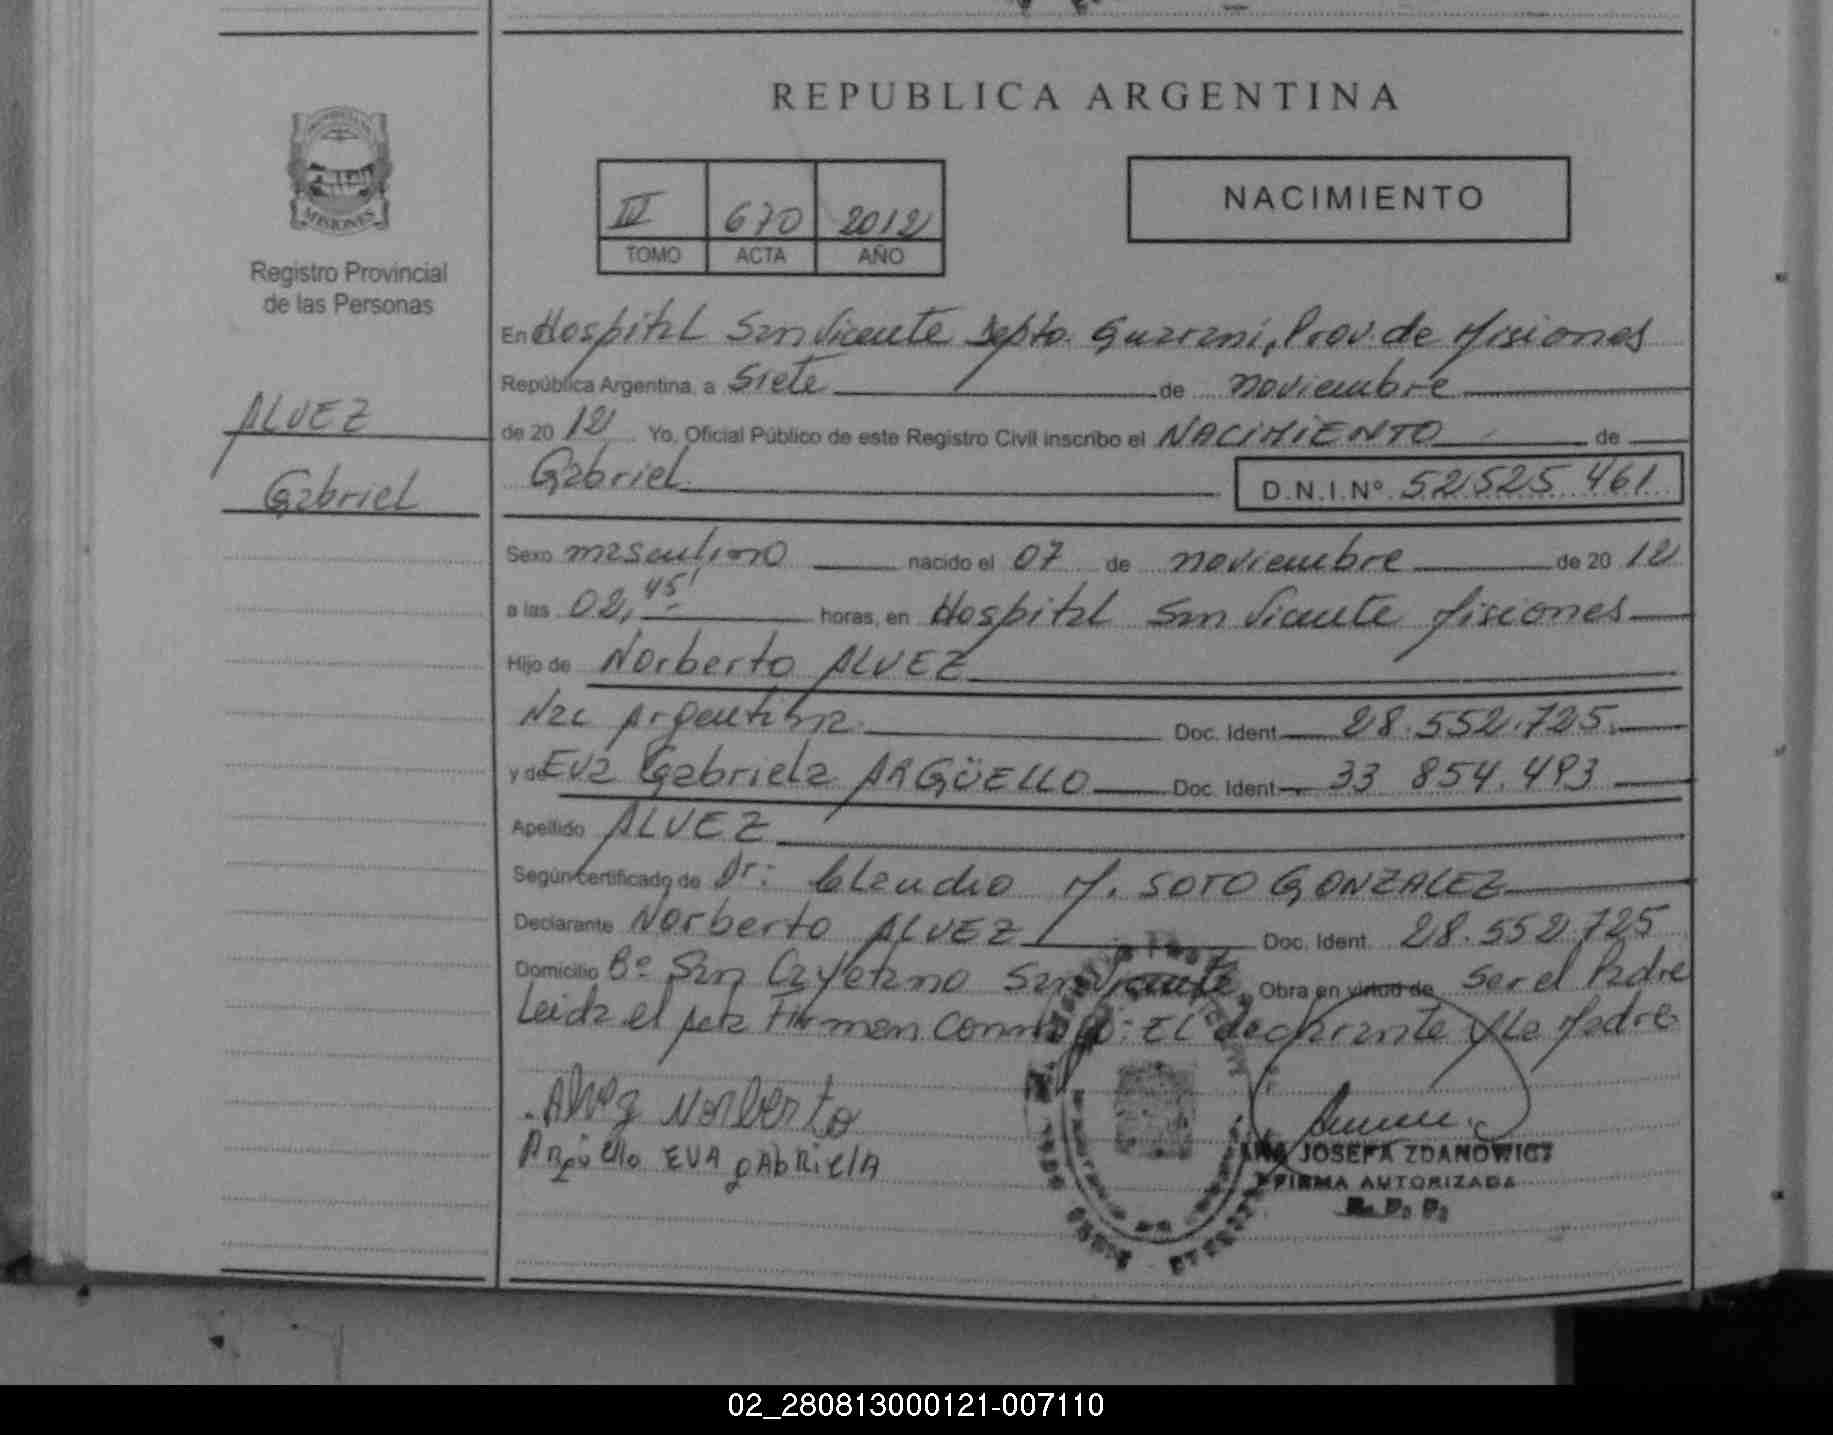 REPUBLICA ARGENTINA
MISIONES
Registro Provincial
de las Personas
670 2012
TOMO ACTA AÑO
NACIMIENTO
ALVEZ
Gabriel
En Hospital San Vicente Depto. Guarani, Prov. de Misiones
República Argentina, a Siete de noviembre
de 2012 Yo, Oficial Público de este Registro Civil inscribo el NACIMIENTO de
Gabriel D.N.I.Nº 52525 461
Sexo masculino nacido el 07 de noviembre de 2012
a las 02,45' horas, en Hospital San Vicente Misiones
Hijo de Norberto ALVEZ
Nac Argentina Doc. Ident 28.552.725.
y de Eva Gabriela ARGÜELLO Doc. Ident 33 854.493
Apellido ALVEZ
Según certificado de Dr: Claudio M. SOTO GONZALEZ
Declarante Norberto ALVEZ Doc. Ident. 28.552.725
Domicilio Bº San Cayetano San Vicente Obra en virtud de Ser el Padre
Leida el Acta Firman Conmigo: EL declarante y La Madre
Alvez Norberto
Argüello EVA gAbRielA
ANA JOSEFA ZDANOWICZ
FIRMA AUTORIZADA
R. P. P.
02_280813000121-007110